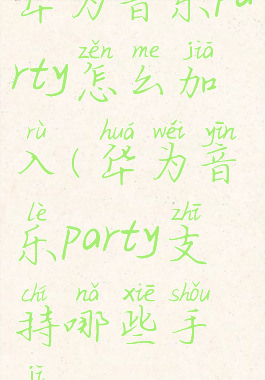 华为音乐pa
zěn me jiā
rty怎么加
rù huá wéi yīn
入(华为音
lè zhī
乐party支
chí nǎ xiē shǒu
持哪些手
jī